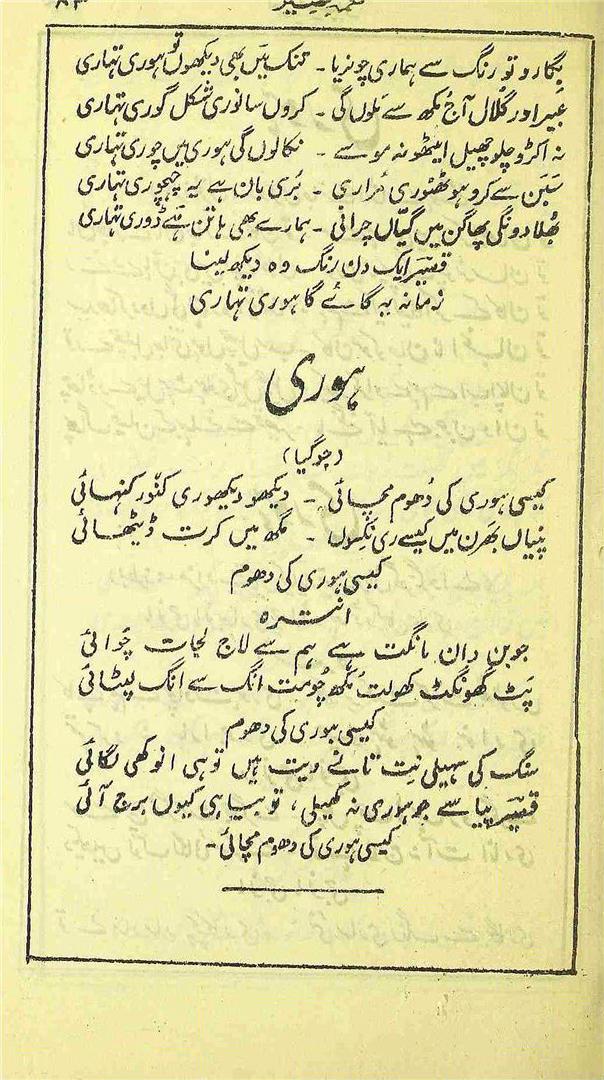 بگارو تو رنگ سے ہماری چونریا ۔ تنک میں بھی دیکھوں تو ہوری تہاری
عبیر اور گلال آج مُکھ سے مَلوں گی ۔ کروں سانوری شکل گوری تہاری
نہ اکڑو چلو چھیل اینٹھو نہ موسے ۔ نکالوں گی ہوری میں چوری تہاری
سَبَن سے کرو ہو ٹھٹوری مُراری ۔ بُری بان ہے یہ چھچوری تہاری
بُھلا دونگی پھاگن میں گیّاں چرانی ۔ ہمارے بھی ہاتن ہے ڈوری تہاری
قیصر ایک دن رنگ وہ دیکھ لینا
زمانہ یہ گائے گا ہوری تہاری
ہوری
(جوگیا)
کیسی ہوری کی دُھوم مچائی ۔ دیکھو دیکھوری کنور کنہائی
پنیاں بھرن میں کیسے ری نکسوں ۔ مگھ میں کرت ڈیٹھائی
کیسی ہوری کی دھوم
انترہ
جوبن دان مانگت ہے ہم سے لاج لجات چُوائی
پَٹ گھونگٹ کھولت مُکھ چُومت انگ سے انگ لپٹائی
کیسی ہوری کی دھوم
سنگ کی سہیلی نِت تانے دیت ہیں توہی انوکھی لگائی
قیصر پیا سے جو ہوری نہ کھیلی، تو بیاہی کیوں برج آئی
کیسی ہوری کی دھوم مچائی ۔